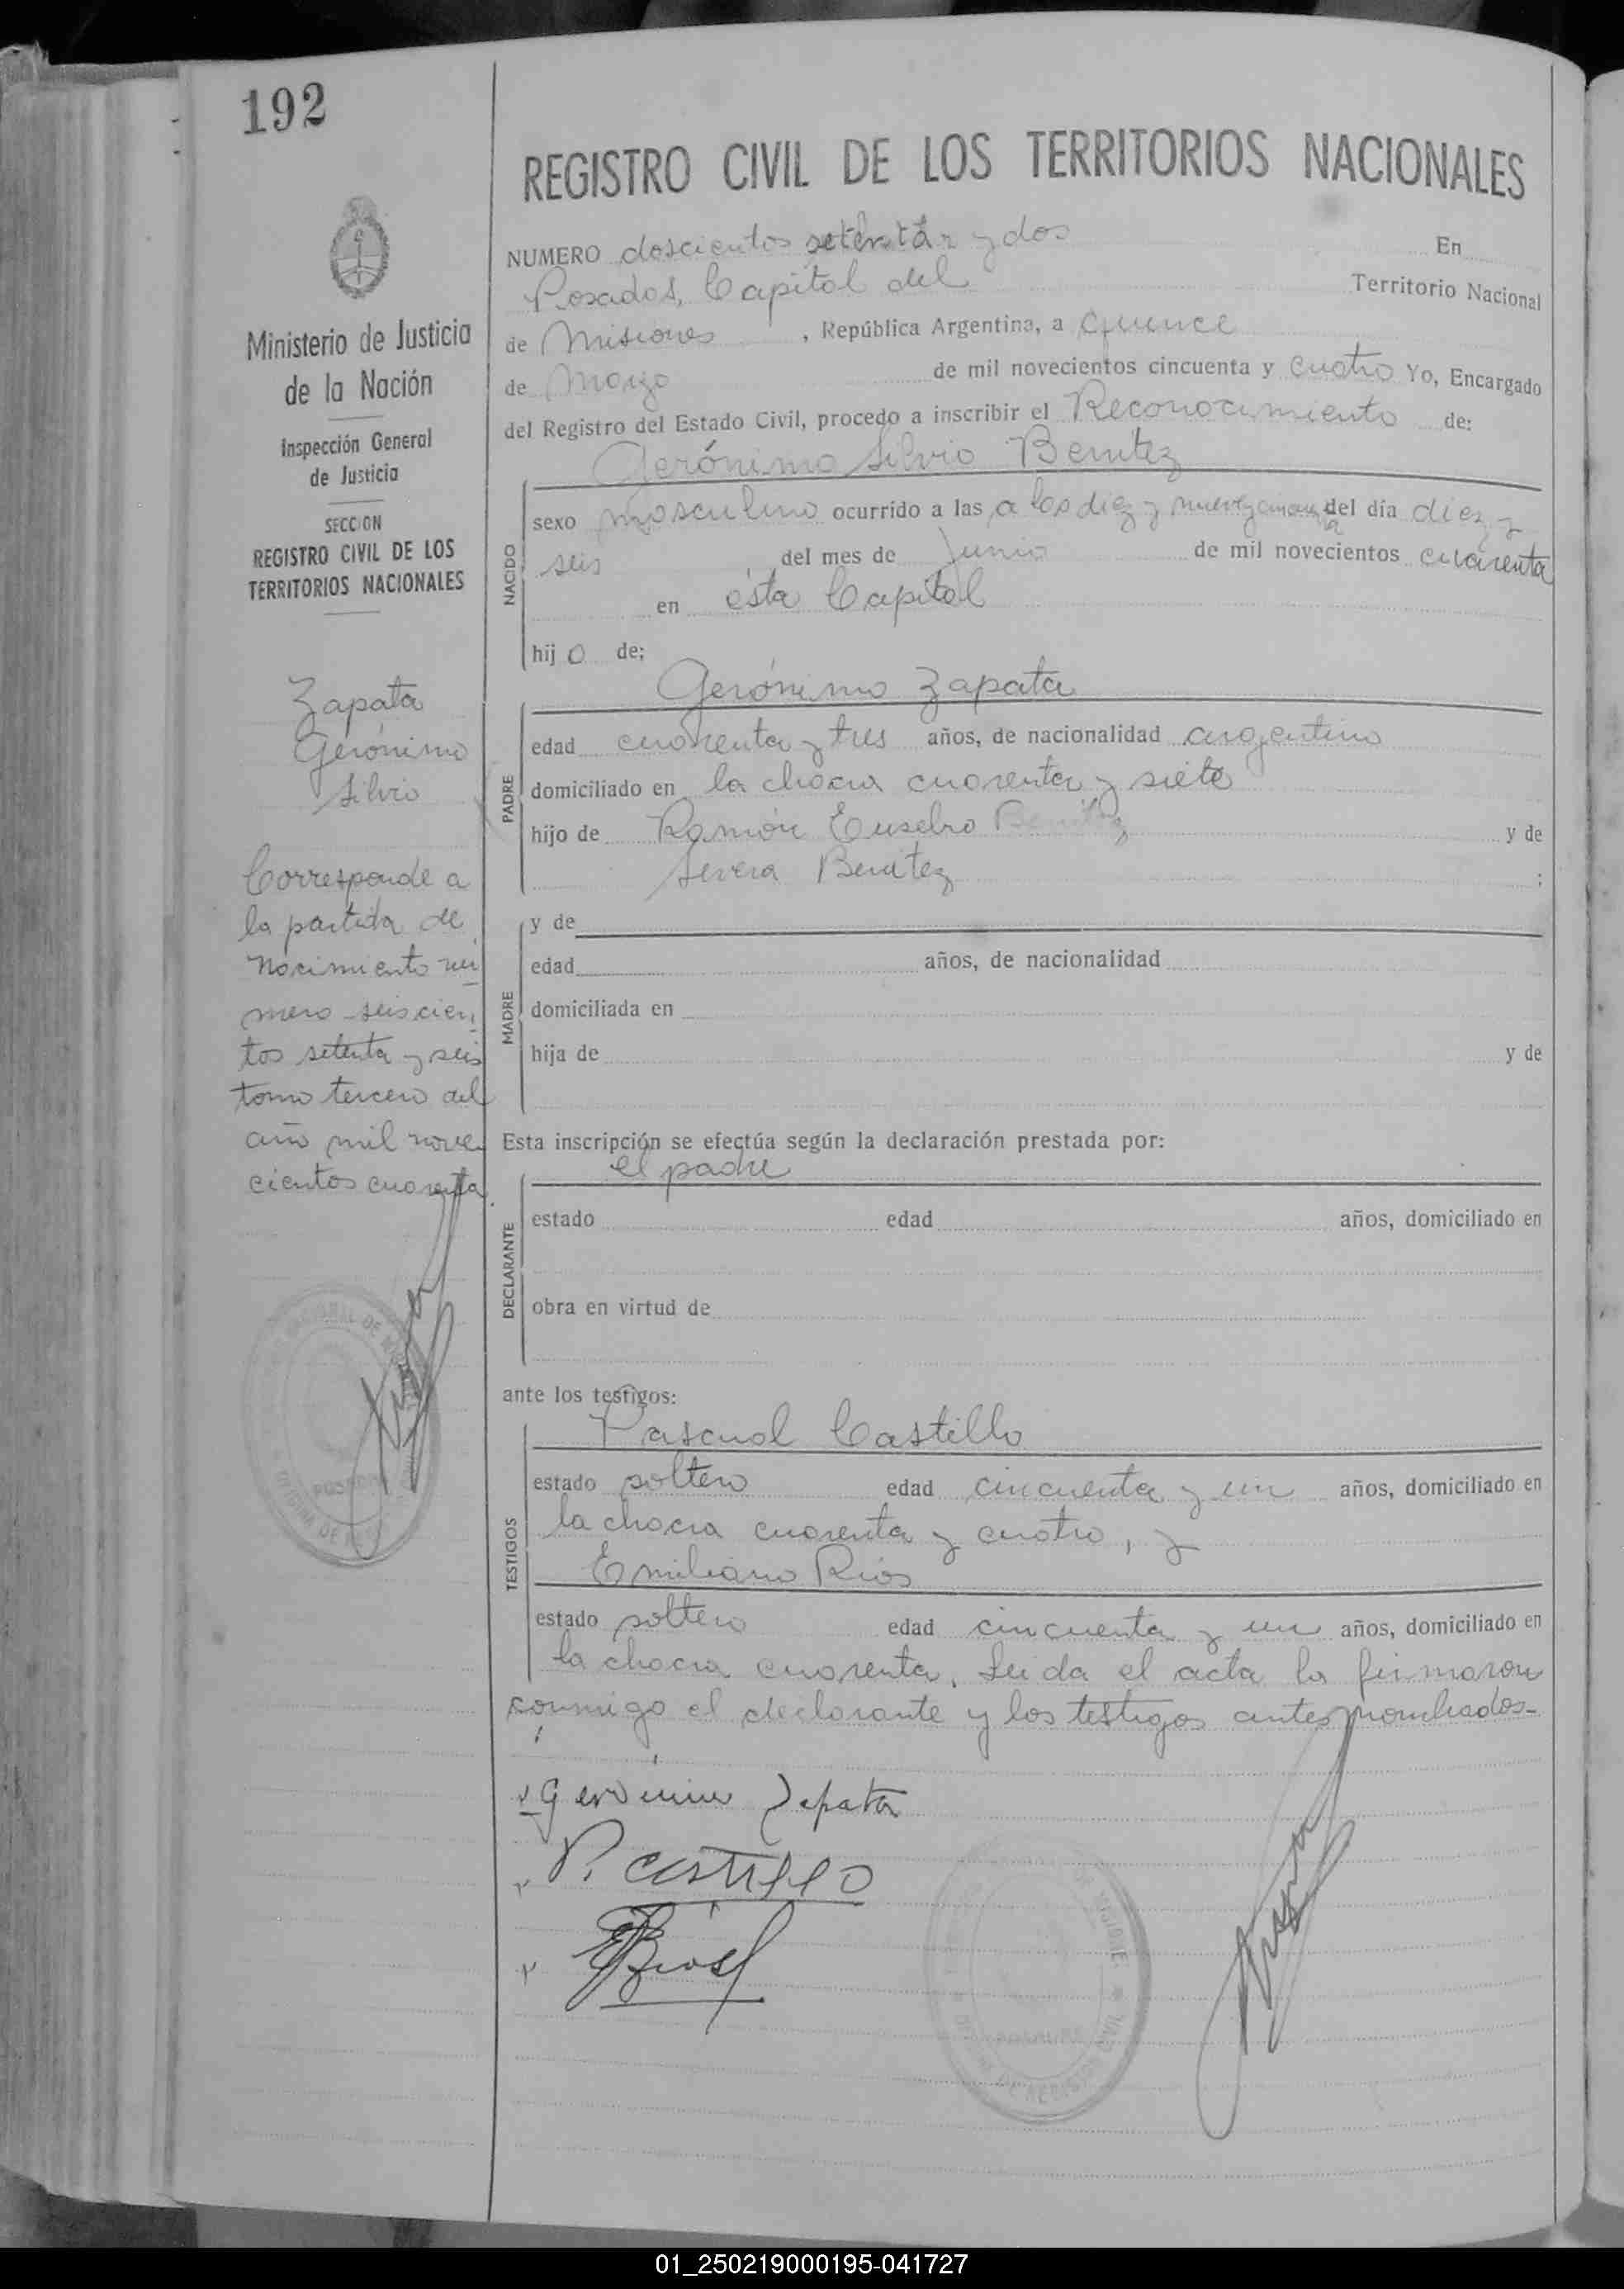 192
REGISTRO CIVIL DE LOS TERRITORIOS NACIONALES
Ministerio de Justicia
de la Nación
Inspección General
de Justicia
SECCION
REGISTRO CIVIL DE LOS
TERRITORIOS NACIONALES
Zapata
Gerónimo
Silvio
Corresponde a
la partida de
Nacimiento nú
mero seiscien
tos setenta y seis
tomo tercero del
año mil nove
cientos cuarenta.
NUMERO doscientos setenta y dos En
Posadas, Capital del Territorio Nacional
de Misiones, República Argentina, a quince
de Marzo de mil novecientos cincuenta y cuatro Yo, Encargado
del Registro del Estado Civil, procedo a inscribir el Reconocimiento de:
Gerónimo Silvio Benítez
NACIDO
sexo masculino ocurrido a las a las diez y nueve del día diez y
seis del mes de Junio de mil novecientos cuarenta
en ésta Capital
hijo de;
Gerónimo Zapata
PADRE
edad cuarenta y tres años, de nacionalidad argentino
domiciliado en la chacra cuarenta y siete
hijo de Ramón Eusebio Benítez y de
Severa Benítez ;
MADRE
y de
edad años, de nacionalidad
domiciliada en
hija de y de
Esta inscripción se efectúa según la declaración prestada por:
el padre
DECLARANTE
estado edad años, domiciliado en
obra en virtud de
ante los testigos:
Pascual Castillo
TESTIGOS
estado soltero edad cincuenta y un años, domiciliado en
la chacra cuarenta y cuatro, y
Emiliano Rios
estado soltero edad cincuenta y un años, domiciliado en
la chacra cuarenta. Leida el acta la firmaron
conmigo el declarante y los testigos antes nombrados-
Geronimo Zapata
P. CASTILLO
E Rios
01_250219000195-041727